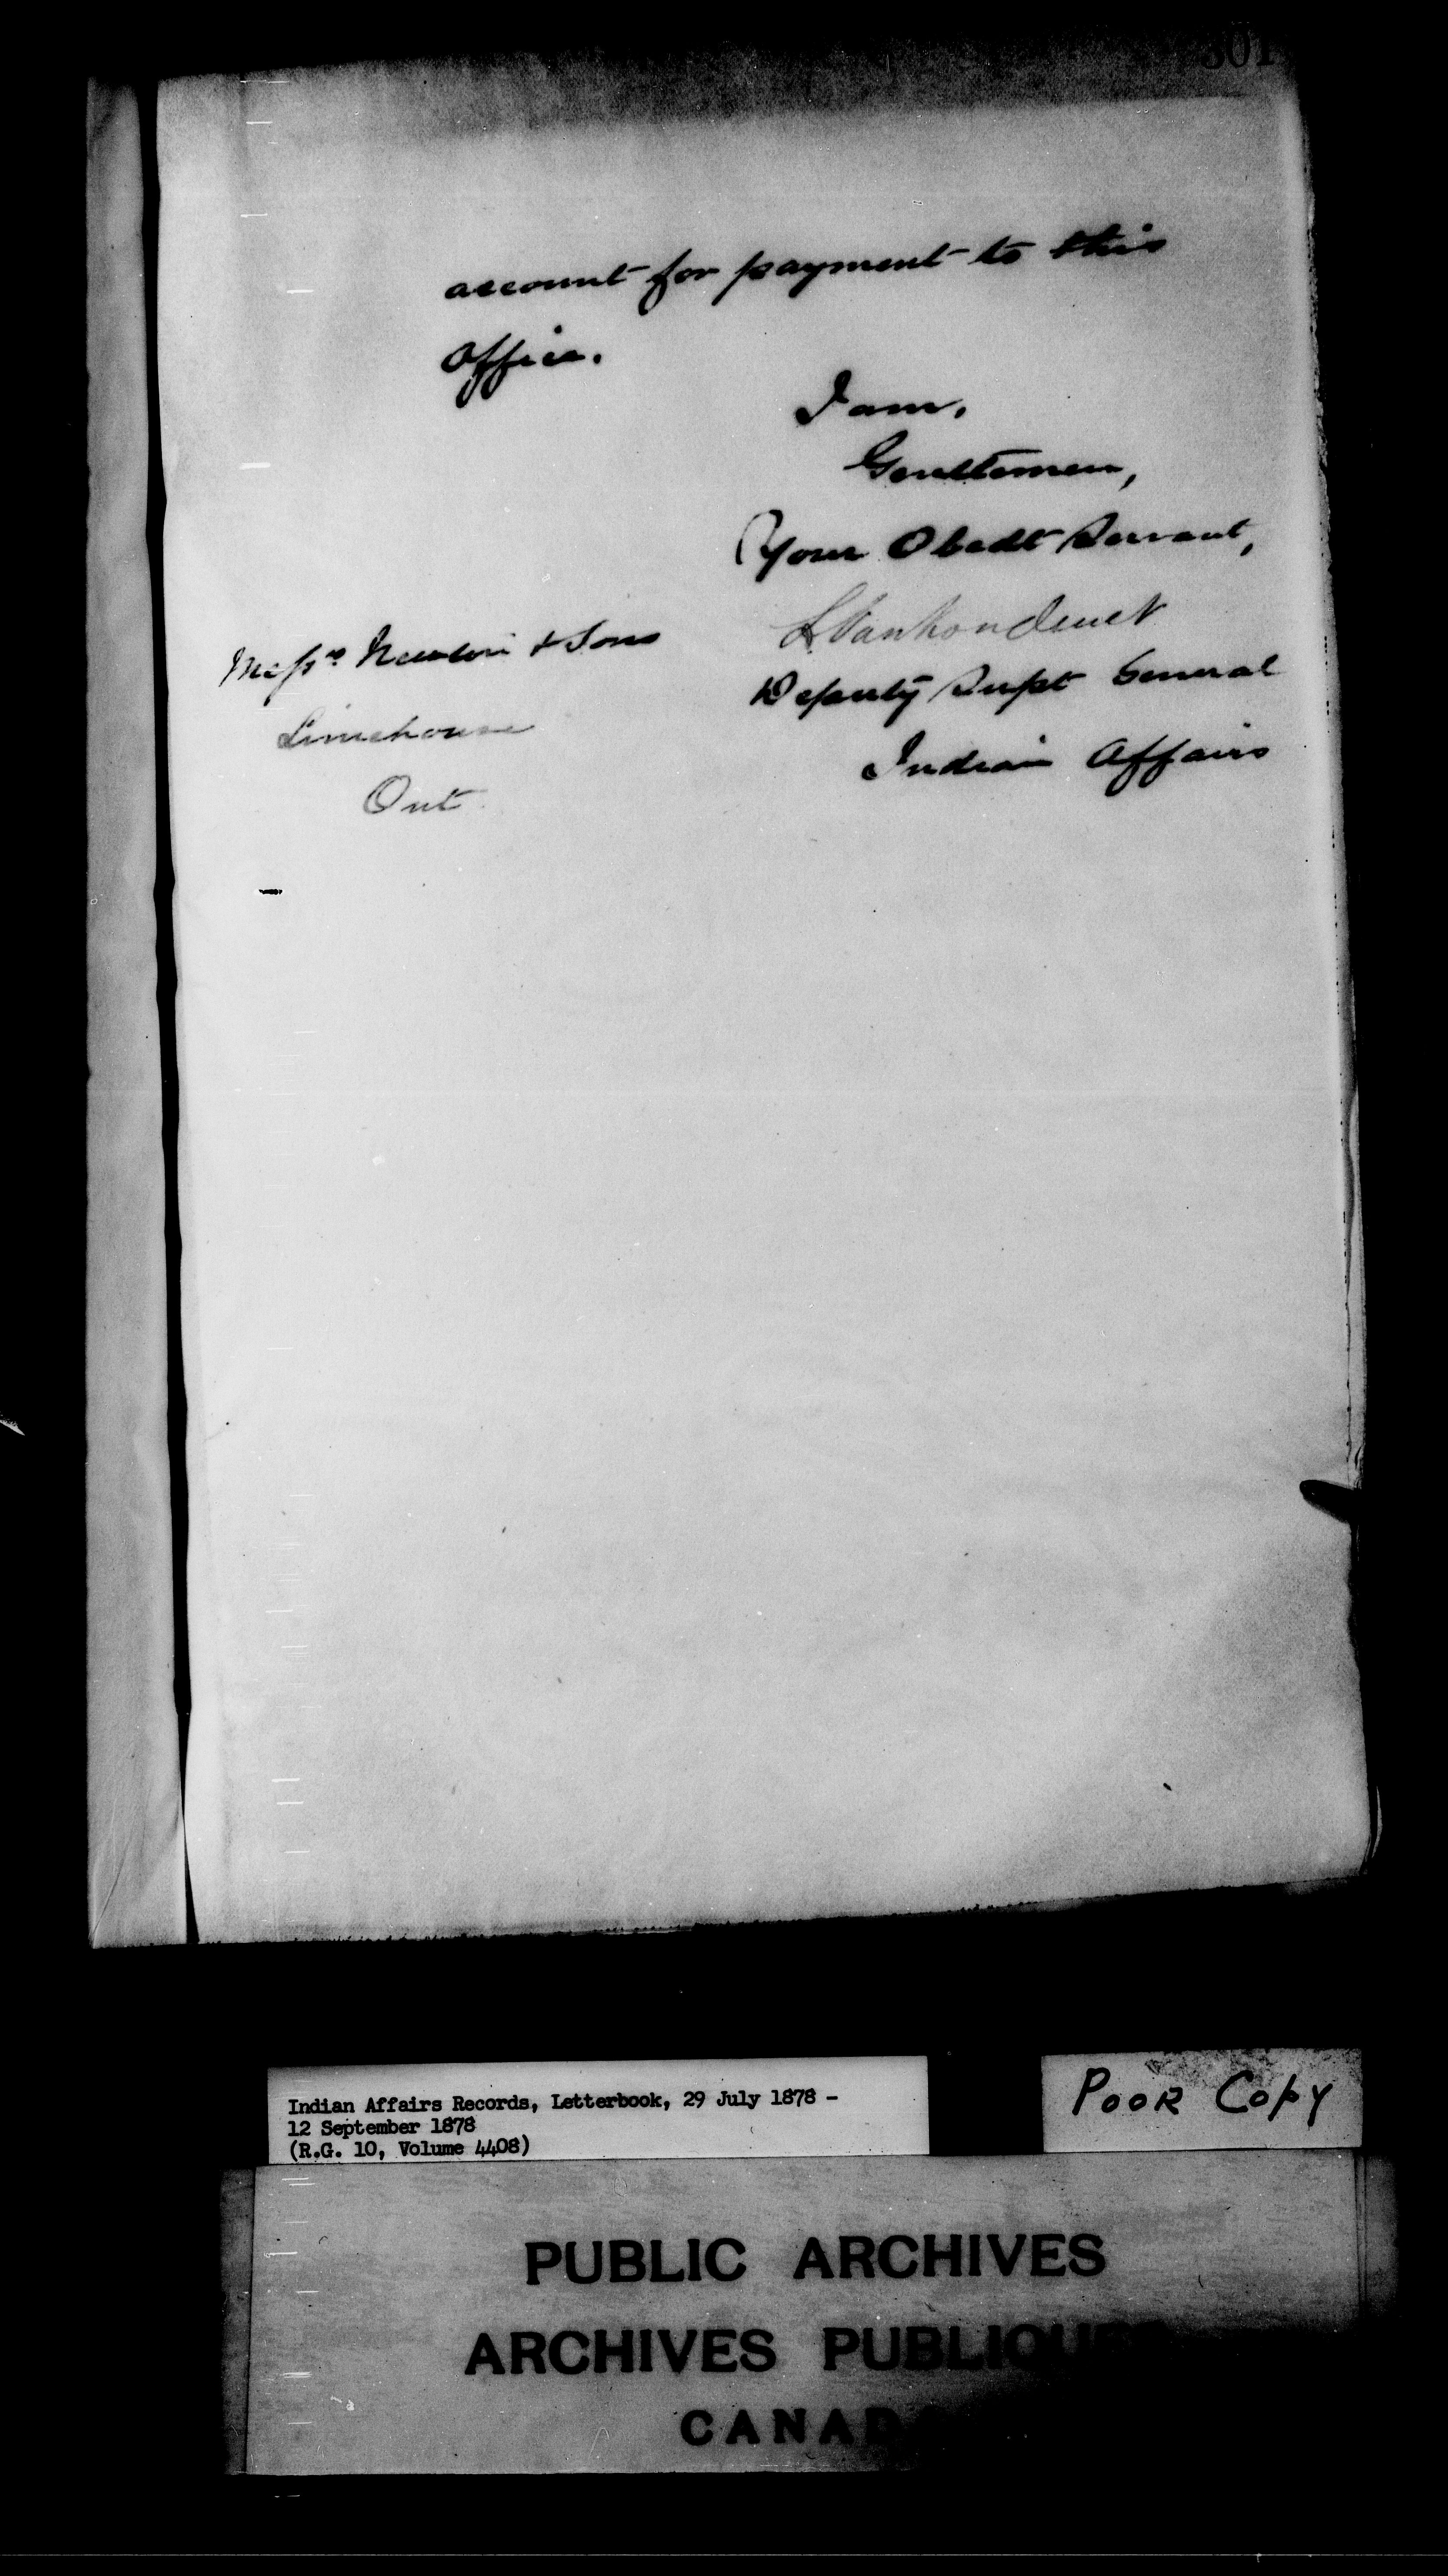 301
account for payment to this
Office.
I am,
Gentlemen,
Your Obedt Servant,
L Vankoughnet
Deputy Supt General
Indian Affairs
Messrs & Sons
Limehouse
Ont
Indian Affairs Records, Letterbook, 29 July 1878 -
12 September 1878
(R.G. 10, Volume 4408)
POOR COPY
PUBLIC ARCHIVES
ARCHIVES PUBLIQUES
CANADA